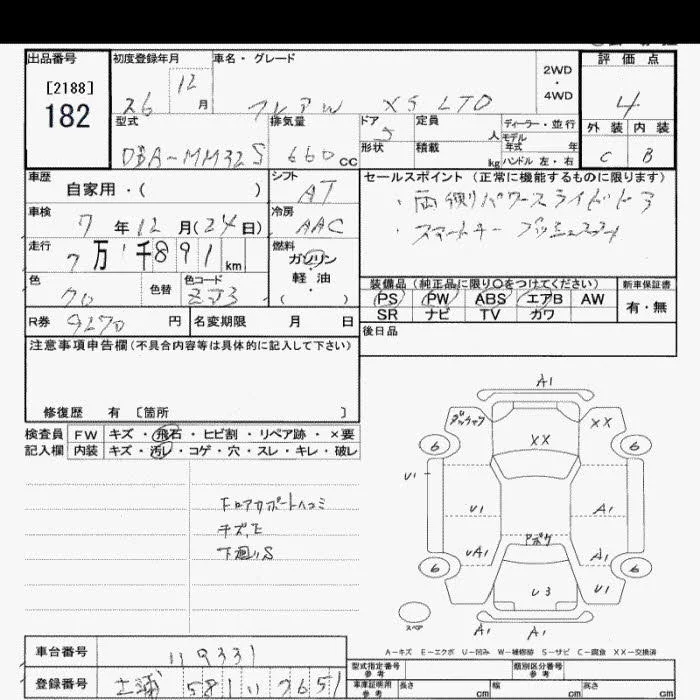 出品番号 初度登録年月 車名・グレード 2WD・4WD 評価点
[2188]
182
26 12月 フレアW XS LTD 4
型式 排気量 ドア 定員 人 ディーラー・並行 外装 内装
形状 積載 kg モデル年式 年 ハンドル 左・右
DBA-MM32S 660cc 5 C B
車歴 自家用・( ) シフト AT セールスポイント(正常に機能するものに限ります)
・両側パワースライドドア
車検 7年12月(24日) 冷房 AAC
・スマートキー プッシュスタート
走行 7万 千891km 燃料 ガソリン・軽油( )
色 クロ 色替 色コード ZJ3
装備品(純正品に限り○をつけてください) 新車保証書
PS PW ABS エアB AW 有・無
SR ナビ TV カワ
R券 9270円 名変期限 月 日 後日品
注意事項申告欄(不具合内容等は具体的に記入して下さい)
修復歴 有 [箇所 ]
検査員記入欄
FW キズ・飛石・ヒビ割・リペア跡・×要
内装 キズ・汚レ・コゲ・穴・スレ・キレ・破レ
A1
XX
XX
6 6
U1
U1 A1
UA1 アポケ A1
6 6
U3 U1
スペア A1 A1
下廻りS
A=キズ E=エクボ U=凹み W=補修跡 S=サビ C=腐食 XX=交換済
車台番号 119331
登録番号 土浦 581 い 7651
型式指定番号 参考 類別区分番号 参考
車庫証明用 参考 長さ cm 幅 cm 高さ cm